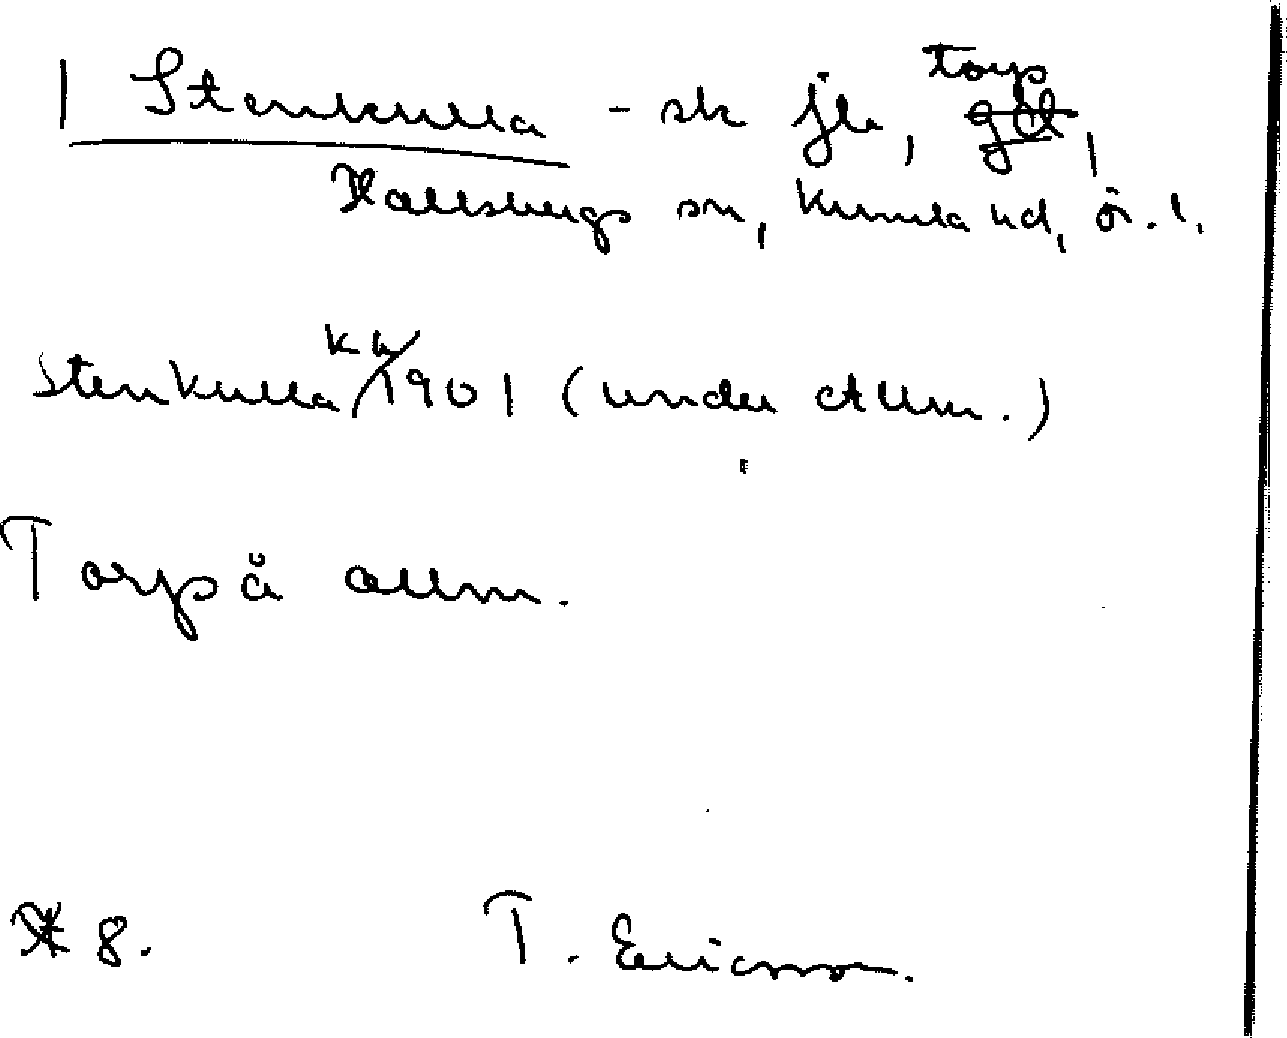 | Stenkulla - sk jla, torp gdt,
Hallsbergs sn, Kumla hd, ör. l.
Stenkulla ka/1901 (under Allm.)
Torp å allm.
8. T. Ericsson.